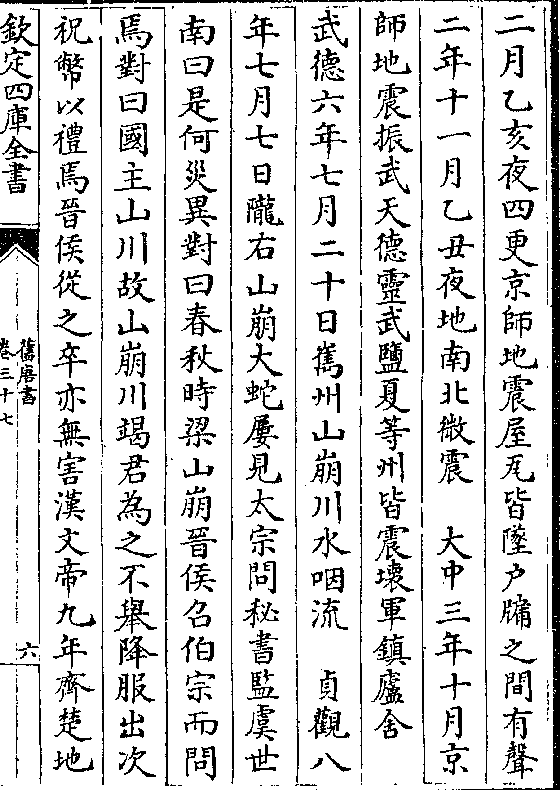 二月乙亥夜四更京師地震屋瓦皆墜户牖之間有聲
二年十一月乙丑夜地南北微震　大中三年十月京
師地震振武天德靈武鹽夏等州皆震壞軍鎮廬舍
武德六年七月二十日巂州山崩川水咽流　貞觀八
年七月七日隴右山崩大蛇屢見太宗問秘書監虞世
南曰是何災異對曰春秋時梁山崩晉侯召伯宗而問
焉對曰國主山川故山崩川竭君為之不舉降服出次
祝幣以禮焉晉侯從之卒亦無害漢文帝九年齊楚地
欽定四庫全書
舊唐書
卷三十七
六